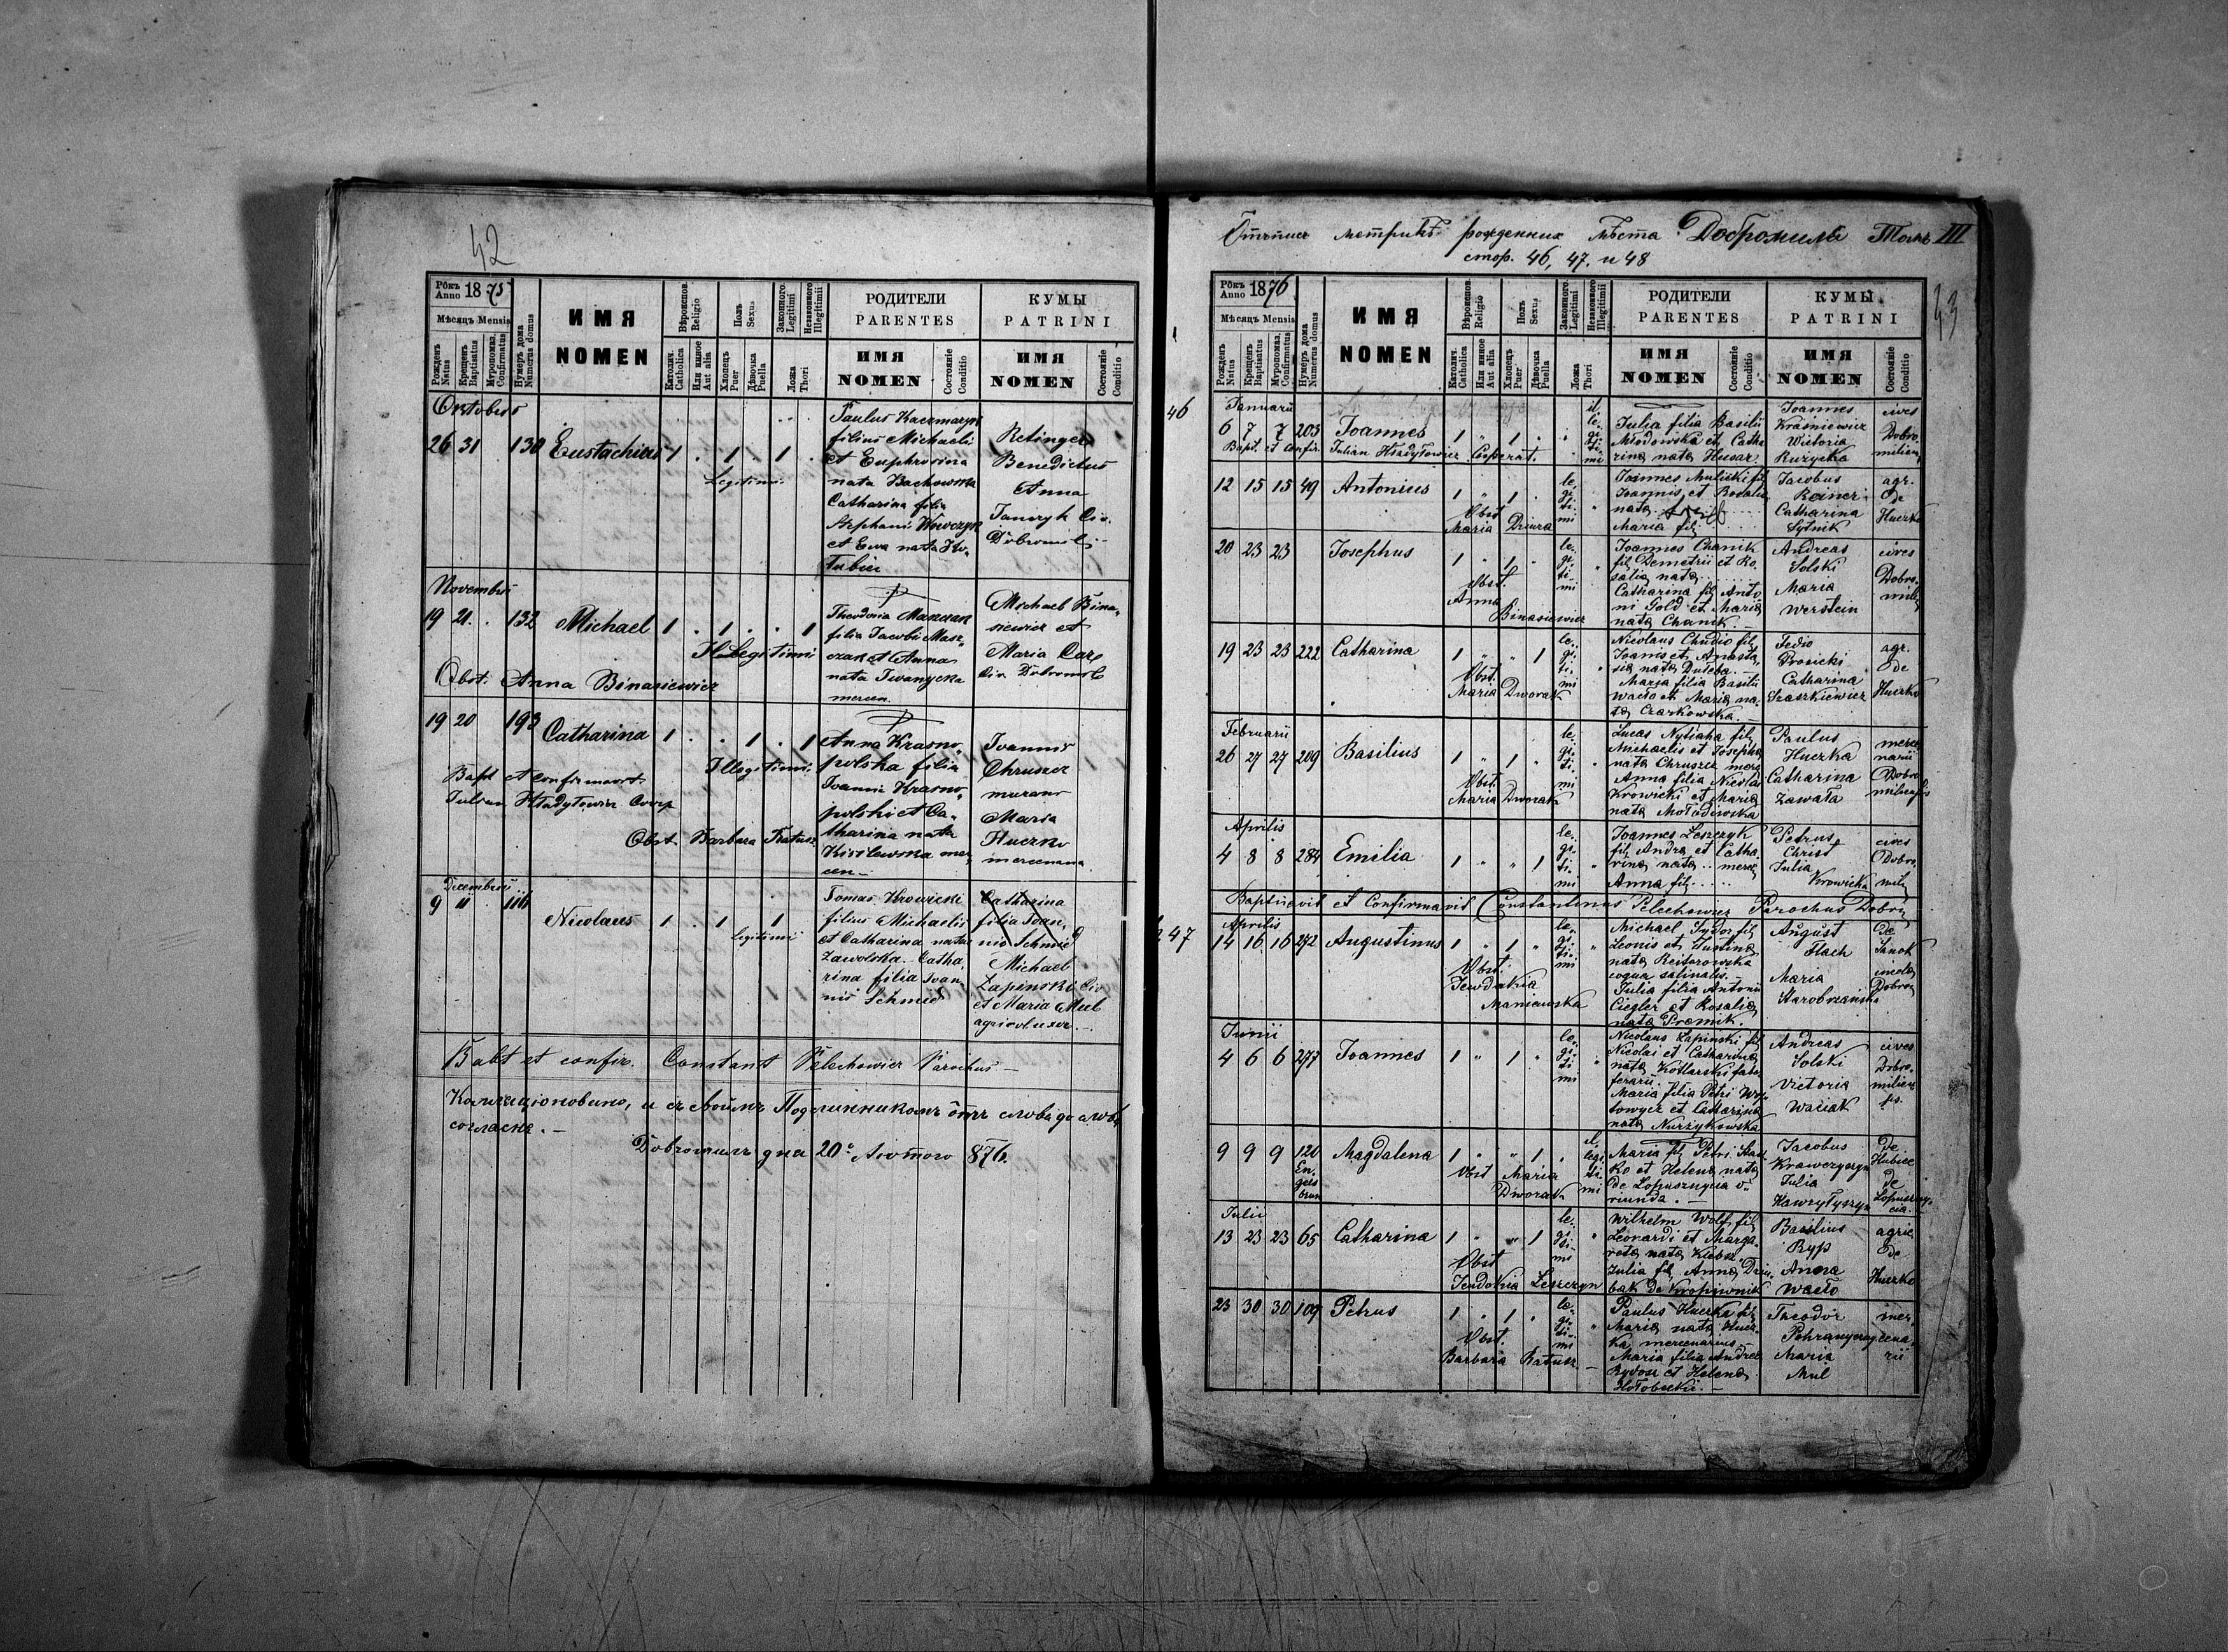 42
Рôкъ Anno 1875
Мѣсяцъ Mensis
Рожденъ Natus
Крещенъ Baptisatus
Мѵропомаз. Confirmatus
Нумеръ дома Numerus domus
ИМЯ
NOMEN
Вѣроиспов. Religio
Католич. Catholica
Или иное Aut alia
Полъ Sexus
Хлопецъ Puer
Дѣвочка Puella
Законного Legitimi
Незаконного Illegitimii
Ложа Thori
РОДИТЕЛИ
PARENTES
ИМЯ
NOMEN
Состояніе Conditio
КУМЫ
PATRINI
ИМЯ
NOMEN
Состояніе Conditio
Oktobris
26 31 . 130 Eustachius 1 . 1 . 1 .
Legitimi
Paulus Kaczmaryk
filius Michaeli
et Euphrosina
nata Bachowska
Catharina filia
Stephani Wowczyk
et Ewa nata
Retinger
Benedictus
Anna
Janczyk Civ.
Dobromil
Novembris
19 21 . 132 Michael 1 . 1 . . 1
Illegitimi
Obst. Anna Binasiewicz
Theodoria Maszczak
filia Jacobi Masz
czak et Anna
nata Iwanycka
mercen.
Michael Bina-
siewicz et
Maria Carl
Civ. Dobromil
19 20 193 Catharina 1 . . 1 . 1
Illegitimi
Bapt et confirmavit
Julian Hładyłowicz Coop
Obst. Barbara Ratusz
Anna Krasno-
polska filia
Ioanni Krasno-
polski et Ca-
tharina nata
Kisilewska mer
cen-
Ioannis
Chruszcz
murano
Maria
Huczko
mercenaria
Decembris
9 11 116 Nicolaus 1 . 1 1
legitimii
Tomas Krowicki
filius Michaelis
et Catharina nata
Zawolska. Catha
rina filia Ioan-
nis Schmid
Catharina
filia Ioan-
nis Schmid
Michael
Łapinski Civ
et Maria Mul
agricol uxor.
Babt et confir. Constant Pelechowicz Parochus -
Коллаціоновано, и съ своимъ Подлинникомъ ôтъ слова до слова
согласна. -
Добромиль дна 20º Лютого 876.
Отъпись метрикъ рожденных мѣста Добромиля Томъ III
стор. 46, 47. и 48
43
Рôкъ Anno 1876
Мѣсяцъ Mensis
Рожденъ Natus
Крещенъ Baptisatus
Мѵропомаз. Confirmatus
Нумеръ дома Numerus domus
ИМЯ
NOMEN
Вѣроиспов. Religio
Католич. Catholica
Или иное Aut alia
Полъ Sexus
Хлопецъ Puer
Дѣвочка Puella
Законного Legitimi
Незаконного Illegitimii
Ложа Thori
РОДИТЕЛИ
PARENTES
ИМЯ
NOMEN
Состояніе Conditio
КУМЫ
PATRINI
ИМЯ
NOMEN
Состояніе Conditio
46
Januarii
6 7 7 203 Ioannes 1 " 1 . . il-le-gi-ti-mi
Bapt. et Confir. Julian Hładyłowicz Cooperat.
Julia filia Basilii
Młodowska et Catha
rina nata Husar
Ioannes
Kraśniewicz
Wictoria
Rużycka
cives
Dobro-
miliens
12 15 15 49 Antonius 1 " 1 . le-gi-ti-mi "
Obst
Maria Dziura
Ioannes Mulicki fil
Ioannis et Rosalia
nata
Maria fil
Jacobus
Reiner
Catharina
Sytnik
agr.
de
Huczko
20 23 23 Josephus 1 " 1 . le-gi-ti-mi "
Obst.
Anna
Binasiewicz
Ioannes Chanik
fil Demetrii et Ro-
salia nata
Catharina fil Anto
ni Gold et Maria
nata Chanik.
Andreas
Solski
Maria
Werstein
cives
Dobro-
mil
19 23 23 222 Catharina 1 " " 1 le-gi-ti-mi "
Obst.
Maria Dworak
Nicolaus Chudio fil
Ioanis et Anasta
sia nata Duleba
Maria filia Basilii
Wacło et Maria na-
ta Czarkowska.
Fedio
Prosicki
Catharina
Szaszkiewicz
agr.
de
Huczko
Februarii
26 27 27 209 Basilius 1 " 1 " le-gi-ti-mi
Obst.
Maria Dworak
Lucas Nytiaha fil
Michaelis et Josepha
nata Chruszcz merc
Anna filia Nicolai
Krowicki et Maria
nata Mołodowska
Paulus
Huczka
Catharina
Zawała
merce
narii
Dobro
miliensis
Aprilis
4 8 8 284 Emilia 1 " " 1 le-gi-ti-mi "
Ioannes Leszczyk
fil Andra et Catha
rina nata .. merc
Anna fil ....
Petrus
Christ
Julia
Krowicka
cives
Dobro
mil
Baptisavit et Confirmavit Constantinus Pelechowicz Parochus Dobr
47
Aprilis
14 16 16 272 Augustinus 1 " 1 . le-gi-ti-mi "
Obst.
Teodokia
Maniewska
Michael Fydor fil
Leonis et Justina
nata Reitorowska
coqua salinalis.
Julia filia Antonii
Ciegler et Rosalia
nata Promik.
August
Flach
Maria
de
Sanok
Dobrom
Junii
4 6 6 277 Ioannes 1 " 1 . le-gi-ti-mi "
Nicolaus Łapinski fil
Nicolai et Catharina
nata Kotlarski fab
ferarii.
Maria filia Petri Woj
towycz et Catharina
nata Nurżykowska
Andreas
Solski
Victoria
Waliak
cives
Dobro-
milien
sis.
9 9 9 120 Magdalena 1 " " 1 . il-legi-ti-mi
En-
gels
brun
Obst Maria
Dworak
Maria fil Petri
ko et Helena nata
de Łopusznyca o-
riunda. -
Jacobus
Krawczyszyn
Julia
Hawryłyszyn
de
Hubice
de
Łopuszny-
cia.
Julii
13 23 23 65 Catharina 1 " " 1 le-gi-ti-mi "
Obst
Teudokia Leszczyn
Wilhelm Wolf fil
Leonardi et Marga-
reta nata Klebsz
Julia fil Anna Dziu-
bak de Kropiwnik
Basilius
Ryp
Anna
Wacło
agric
de
Huczko
23 30 30 109 Petrus 1 " 1 . le-gi-ti-mi "
Obst.
Barbara Ratusz
Paulus Huczka fil
Maria nata Hucz-
ka mercenarius -
Maria filia Andrea
Rydosz et Helena
Hołobecki. -
Theodor
Maria
Mul
mer-
cena
rii